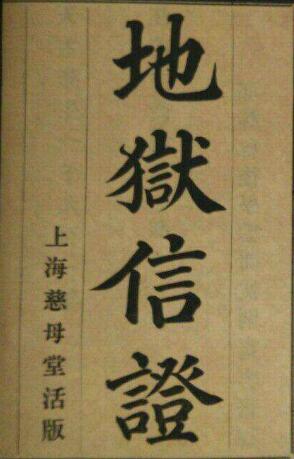 地獄信證
上海慈母堂活版